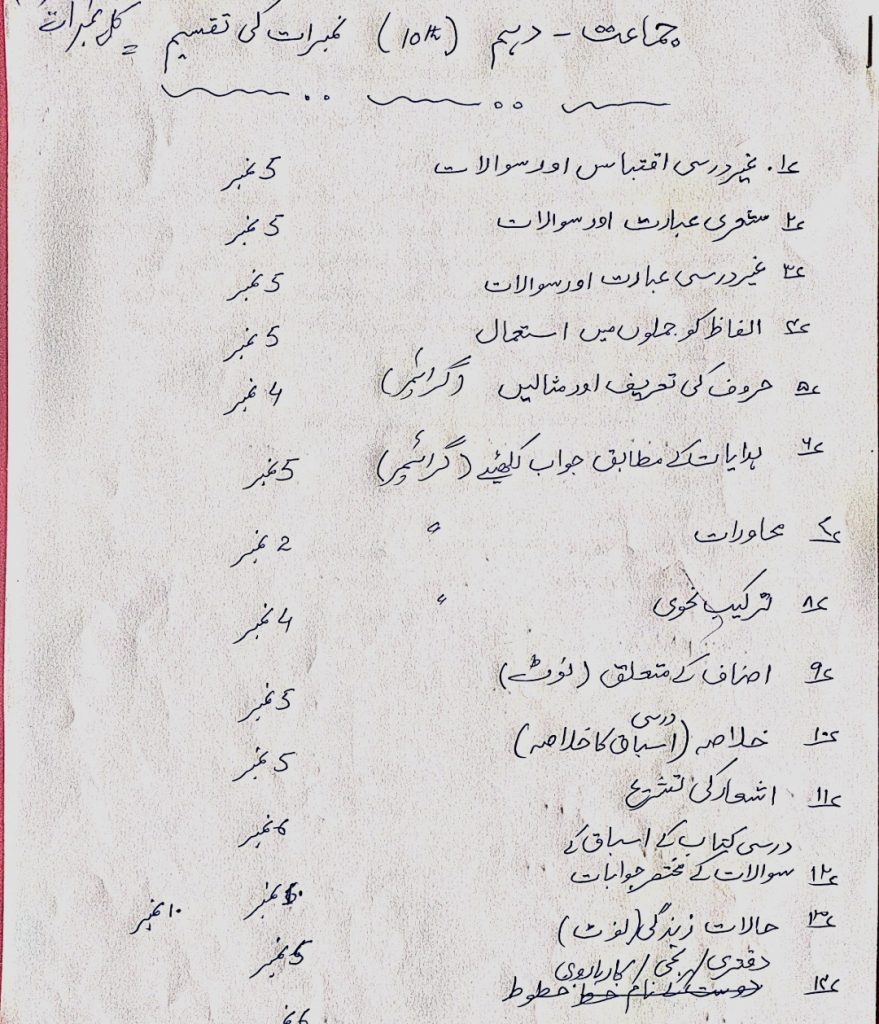 جماعت - دہم (10th) نمبرات کی تقسیم = کل نمبرات
۱؎ غیر درسی اقتباس اور سوالات 5 نمبر
۲؎ شعری عبارت اور سوالات 5 نمبر
۳؎ غیر درسی عبارت اور سوالات 5 نمبر
۴؎ الفاظ کو جملوں میں استعمال 5 نمبر
۵؎ حروف کی تعریف اور مثالیں (گرائمر) 4 نمبر
۶؎ ہدایات کے مطابق جواب لکھیئے (گرائمر) 5 نمبر
۷؎ محاورات " 2 نمبر
۸؎ ترکیب نحوی " 4 نمبر
9؎ اصناف کے متعلق (نوٹ) 5 نمبر
۱۰؎ خلاصہ (درسی اسباق کا خلاصہ) 5 نمبر
۱۱؎ اشعار کی تشریح 6 نمبر
درسی کتاب کے اسباق کے
۱۲؎ سوالات کے مختصر جوابات ۱۰ نمبر
۱۳؎ حالات زندگی (نوٹ) نمبر
دفتری / نجی / کاروباری
۱۴؎ دوست کے نام خط خطوط